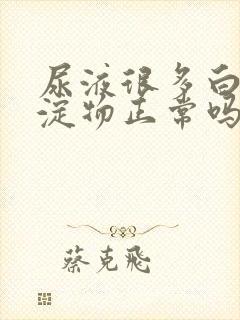 尿液很多白
淀物正常吗
蔡克飛